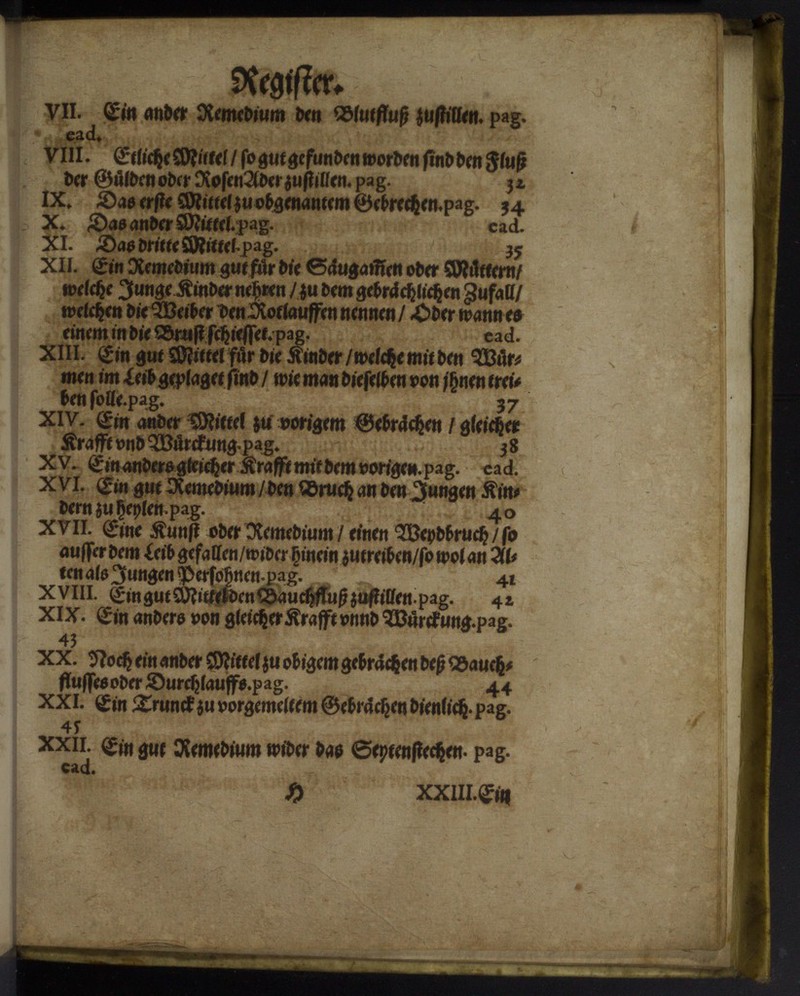 Register.
VII. Ein ander Remedium den Blutfluß zustillen. pag.
ead.
VIII. Etliche Mittel / so gut gefunden worden sind den Fluß
der Gülden oder Rosen Ader zustillen. pag. 32
IX. Das erste Mittel zu obgenantem Gebrechen. pag. 34
X. Das ander Mittel. pag. ead.
XI. Das dritte Mittel. pag. 35
XII. Ein Remedium gut für die Säugam̃en oder Müttern/
welche Junge Kinder nehren / zu dem gebrächlichen Zufall/
welchen die Weiber den Rotlauffen nennen / Oder wann es
einem in die Brust schiesset. pag. ead.
XIII. Ein gut Mittel für die Kinder / welche mit den Wür⸗
men im Leib geplaget sind / wie man dieselben von jhnen trei⸗
ben solle. pag. 37
XIV. Ein ander Mittel zu vorigem Gebrächen / gleicher
Krafft vnd Würckung. pag. 38
XV. Ein anders gleicher Krafft mit dem vorigen. pag. ead.
XVI. Ein gut Remedium / den Bruch an den Jungen Kin⸗
dern zu heylen. pag. 40
XVII. Eine Kunst oder Remedium / einen Weydbruch / so
ausser dem Leib gefallen / wider hinein zutreiben / so wol an Al⸗
ten als Jungen Persohnen. pag. 41
XVIII. Ein gut Mittel den Bauchfluß zustillen. pag. 42
XIX. Ein anders von gleicher Krafft vnnd Würckung. pag.
43
XX. Noch ein ander Mittel zu obigem gebrächen deß Bauch⸗
flusses oder Durchlauffs. pag. 44
XXI. Ein Trunck zu vorgemeltem Gebrächen dienlich. pag.
45
XXII. Ein gut Remedium wider das Seytenstechen. pag.
ead.
H XXIII. Ein